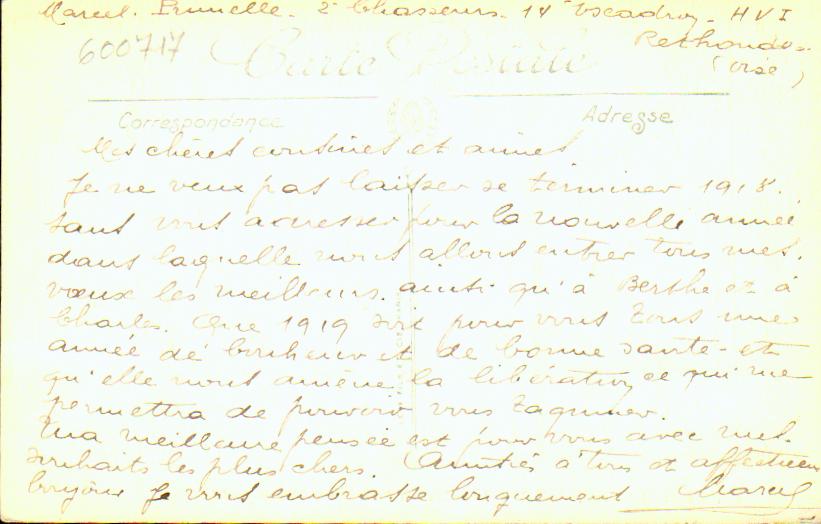 Marcel Prunelle. 2e Chasseurs. 14e Escadron. H V I
Rethondes.
(Oise)
600717
Carte Postale
Correspondance
Adresse
Mes chères cousines et amies
Je ne veux pas laisser se terminer 1918.
sans vous adresser pour la nouvelle année
dans laquelle nous allons entrer tous mes.
vœux les meilleurs. ainsi qu'à Berthe et à
Charles. Que 1919 soit pour vous tous une
année de bonheur et de bonne santé - et
qu'elle nous amène la libération ce qui me
permettra de pouvoir vous taquiner.
Ma meilleure pensée est pour vous avec mes.
souhaits les plus chers. Amitiés à tous et affectueux
bonjour Je vous embrasse longuement Marcel